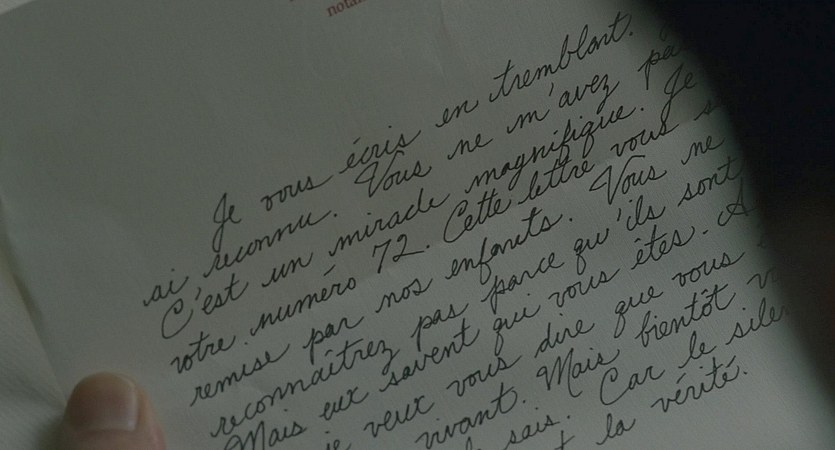 nota
Je vous écris en tremblant.
ai reconnu. Vous ne m'avez pa
C'est un miracle magnifique. Je
votre numéro 72. Cette lettre vous s
remise par nos enfants. Vous ne
reconnaîtrez pas parce qu'ils sont
Mais eux savent qui vous êtes. A
je veux vous dire que vous
vivant. Mais bientôt v
sais. Car le sile
la vérité.